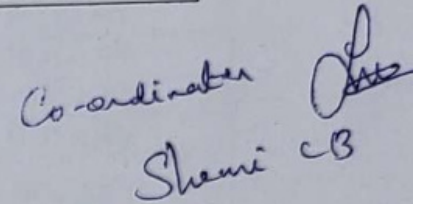 Co-ordinator
Shemi CB